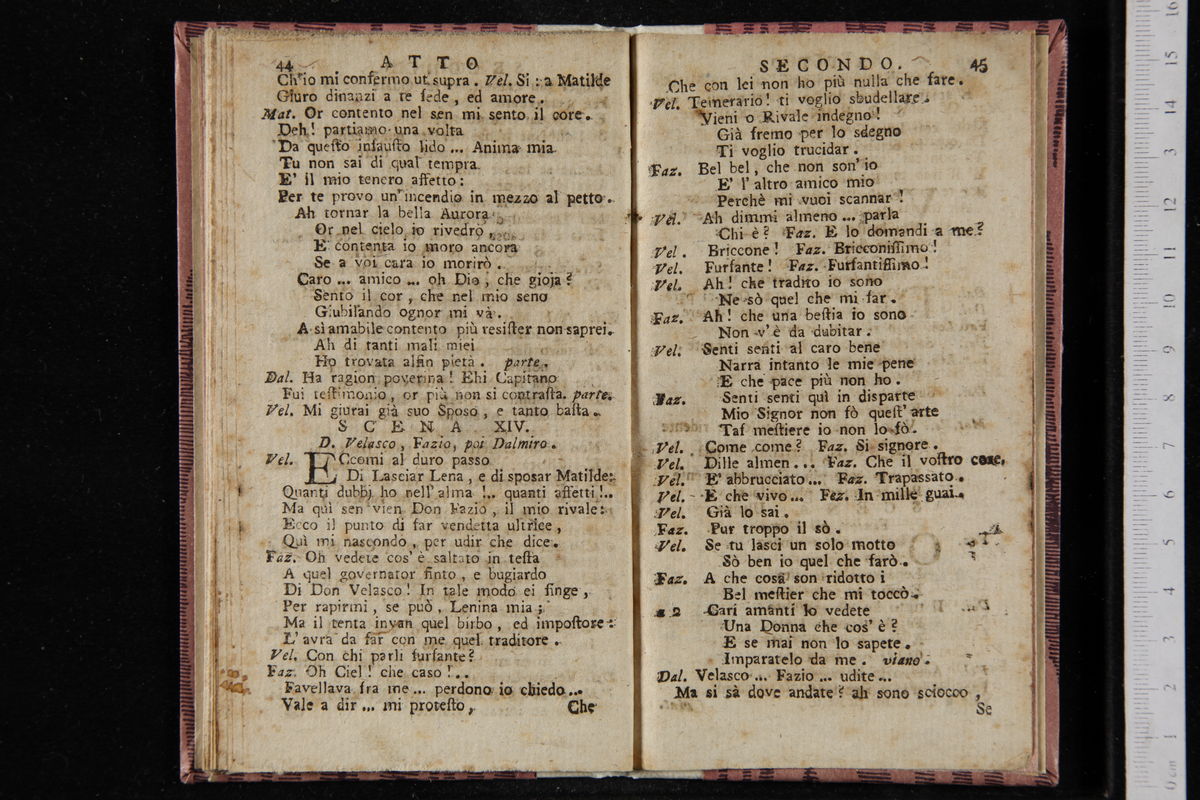 44 ATTO
Ch'io mi confermo ut supra. Vel. Si: a Matilde
Giuro dinanzi a te fede, ed amore.
Mat. Or contento nel sen mi sento il core.
Deh! partiamo una volta
Da questo infausto lido ... Anima mia
Tu non sai di qual tempra
E' il mio tenero affetto:
Per te provo un' incendio in mezzo al petto.
Ah tornar la bella Aurora
Or nel cielo io rivedrò
E contenta io moro ancora
Se a voi cara io morirò.
Caro ... amico ... oh Dio, che gioja?
Sento il cor, che nel mio seno
Giubilando ognor mi và.
A sì amabile contento più resister non saprei.
Ah di tanti mali miei
Ho trovata alfin pietà. parte.
Dal. Ha ragion poverina! Ehi Capitano
Fui testimonio, or più non si contrasta. parte.
Vel. Mi giurai già suo Sposo, e tanto basta.
SCENA XIV.
D. Velasco, Fazio, poi Dalmiro.
Vel. ECcomi al duro passo
Di Lasciar Lena, e di sposar Matilde:
Quanti dubbj ho nell'alma !.. quanti affetti!..
Ma quì sen vien Don Fazio, il mio rivale:
Ecco il punto di far vendetta ultrice,
Quì mi nascondo, per udir che dice.
Faz. Oh vedete cos'è saltato in testa
A quel governator finto, e bugiardo
Di Don Velasco! In tale modo ei finge,
Per rapirmi, se può, Lenina mia;
Ma il tenta invan quel birbo, ed impostore:
L'avra da far con me quel traditore.
Vel. Con chi parli furfante?
Faz. Oh Ciel! che caso!..
Favellava fra me ... perdono io chiedo ...
Vale a dir ... mi protesto,
Che
SECONDO. 45
Che con lei non ho più nulla che fare.
Vel. Temerario! ti voglio sbudellare.
Vieni o Rivale indegno!
Già fremo per lo sdegno
Ti voglio trucidar.
Faz. Bel bel, che non son' io
E' l'altro amico mio
Perchè mi vuoi scannar!
Vel. Ah dimmi almeno ... parla
Chi è? Faz. E lo domandi a me?
Vel. Briccone! Faz. Bricconissimo!
Vel. Furfante! Faz. Furfantissimo!
Vel. Ah! che tradito io sono
Ne sò quel che mi far.
Faz. Ah! che una bestia io sono
Non v'è da dubitar.
Vel. Senti senti al caro bene
Narra intanto le mie pene
E che pace più non ho.
Faz. Senti senti quì in disparte
Mio Signor non fò quest' arte
Tal mestiere io non lo fò.
Vel. Come come? Faz. Si signore.
Vel. Dille almen... Faz. Che il vostro core.
Vel. E' abbrucciato ... Faz. Trapassato.
Vel. E che vivo ... Fez. In mille guai.
Vel. Già lo sai.
Faz. Pur troppo il sò.
Vel. Se tu lasci un solo motto
Sò ben io quel che farò.
Faz. A che cosa son ridotto i
Bel mestier che mi toccò.
a 2 Cari amanti lo vedete
Una Donna che cos'è?
E se mai non lo sapete.
Imparatelo da me. viano.
Dal. Velasco ... Fazio ... udite ...
Ma si sà dove andate? ah sono sciocco,
Se